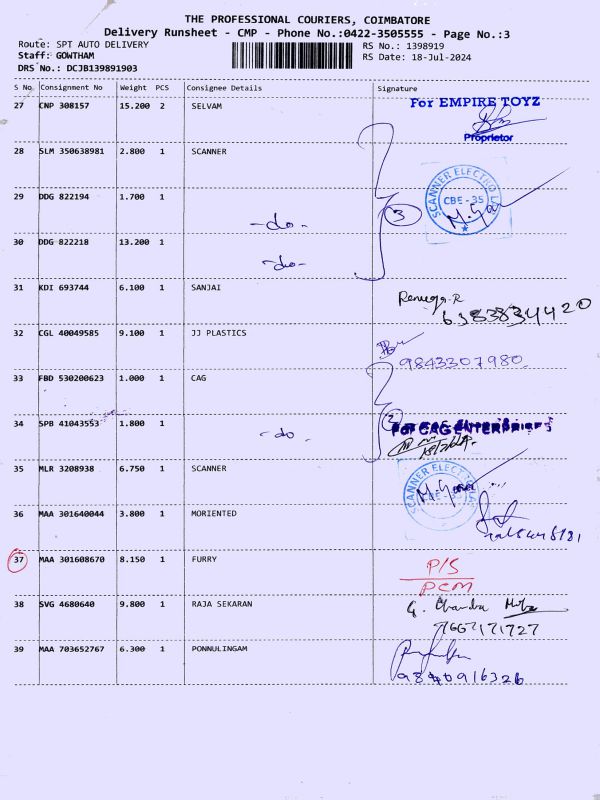 THE PROFESSIONAL COURIERS, COIMBATORE
Delivery Runsheet - CMP - Phone No.:0422-3505555 - Page No.:3
Route: SPT AUTO DELIVERY RS No.: 1398919
Staff: GOWTHAM RS Date: 18-Jul-2024
DRS No.: DCJB139891903
S No. Consignment No Weight PCS Consignee Details Signature
27 CNP 308157 15.200 2 SELVAM For EMPIRE TOYZ
Proprietor
28 SLM 350638981 2.800 1 SCANNER
29 DDG 822194 1.700 1 SCANNER ELECTRO
CBE - 35
-do- 3
30 DDG 822218 13.200 1
-do-
31 KDI 693744 6.100 1 SANJAI Renuga.R
6383834420
32 CGL 40049585 9.100 1 JJ PLASTICS
9843307980
33 FBD 530200623 1.000 1 CAG
34 SPB 41043553 1.800 1 -do- 2
35 MLR 3208938 6.750 1 SCANNER SCANNER ELECTRO
36 MAA 301640044 3.800 1 MORIENTED
37 MAA 301608670 8.150 1 FURRY P/S
PCM
38 SVG 4680640 9.800 1 RAJA SEKARAN G. Chandra
7667171727
39 MAA 703652767 6.300 1 PONNULINGAM
9840916326